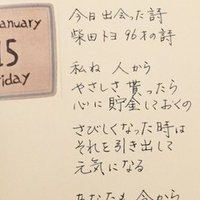 January
15
Friday
今日出会った詩
柴田トヨ 96才の詩
私ね 人から
やさしさ 貰ったら
心に 貯金しておくの
さびしくなった時は
それを引き出して
元気になる
あなたも 今から